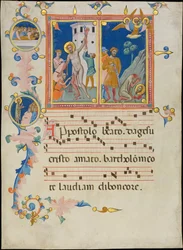 Apostolo beato. da gesu
cristo amato. bartholomeo
te laudiam di boncore.